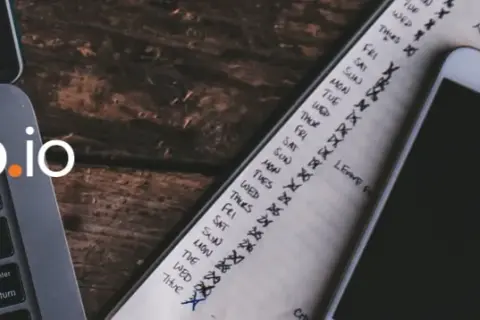 .io
TUE
WED
THURS
FRI
SAT
SUN
MON
TUE
WED
THUR
FRI
SAT
SUN
MON
TUES
WED
THURS
FRI
SAT
SUN
MON
TUE
WED
THUR
LEAVE
enter
return